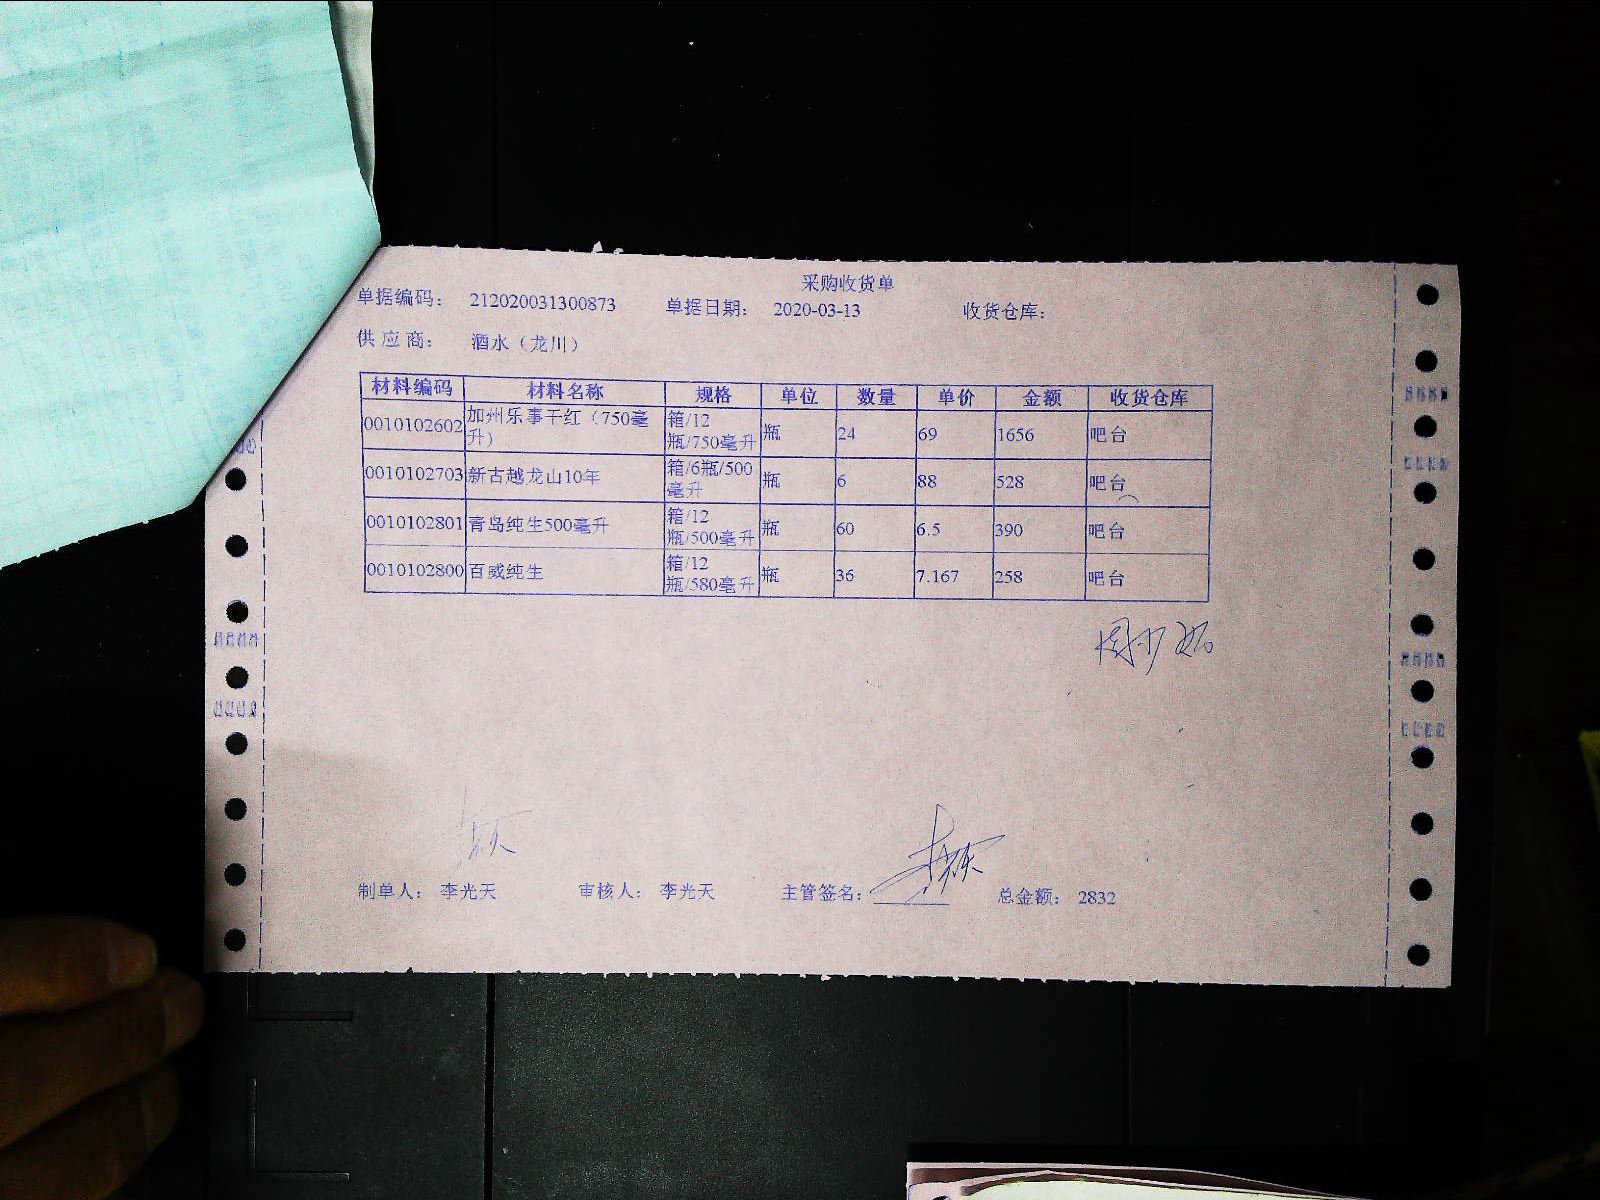 采购收货单
单据编码： 212020031300873 单据日期： 2020-03-13 收货仓库：
供应商： 酒水（龙川）
材料编码 材料名称 规格 单位 数量 单价 金额 收货仓库
0010102602 加州乐事干红（750毫升） 箱/12瓶/750毫升 瓶 24 69 1656 吧台
0010102703 新古越龙山10年 箱/6瓶/500毫升 瓶 6 88 528 吧台
0010102801 青岛纯生500毫升 箱/12瓶/500毫升 瓶 60 6.5 390 吧台
0010102800 百威纯生 箱/12瓶/580毫升 瓶 36 7.167 258 吧台
制单人： 李光天 审核人： 李光天 主管签名： 总金额： 2832